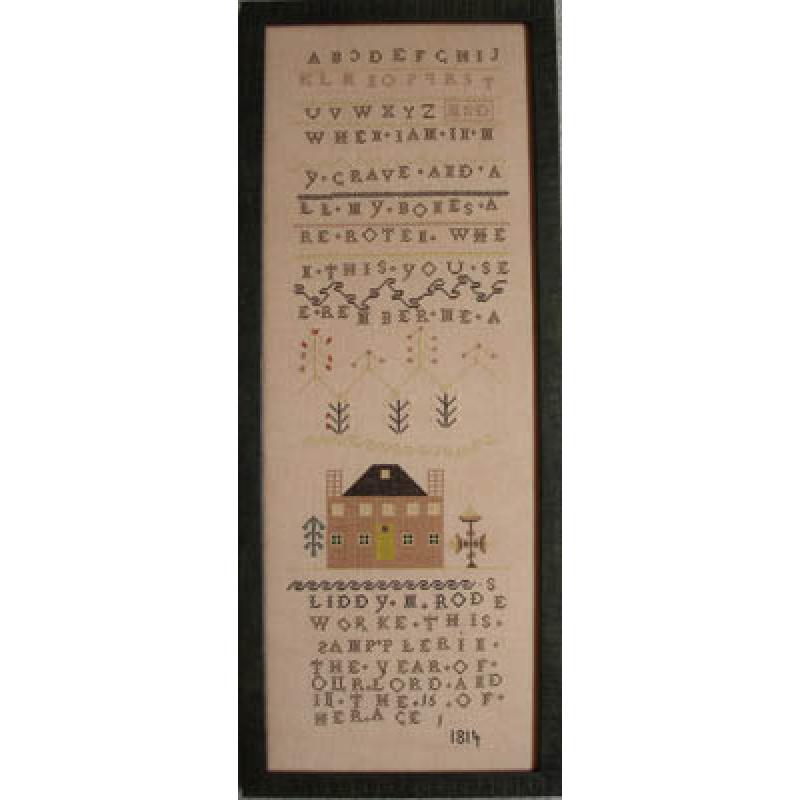 A B C D E F G H I J
K L M N O P P R S T
U V W X Y Z AND
WHEN · I AM · IN · M
Y · GRAVE · AND · A
LL · MY · BONES · A
RE · ROTEN · WHE
N · THIS · YOU · SE
E · REMBER · ME · A
S
LIDDY · M · RODE
WORKE · THIS ·
SAMPPLER IN ·
THE · YEAR · OF ·
OUR · LORD · AND
IN · THE · 15 · OF ·
HER · AGE 1
1814